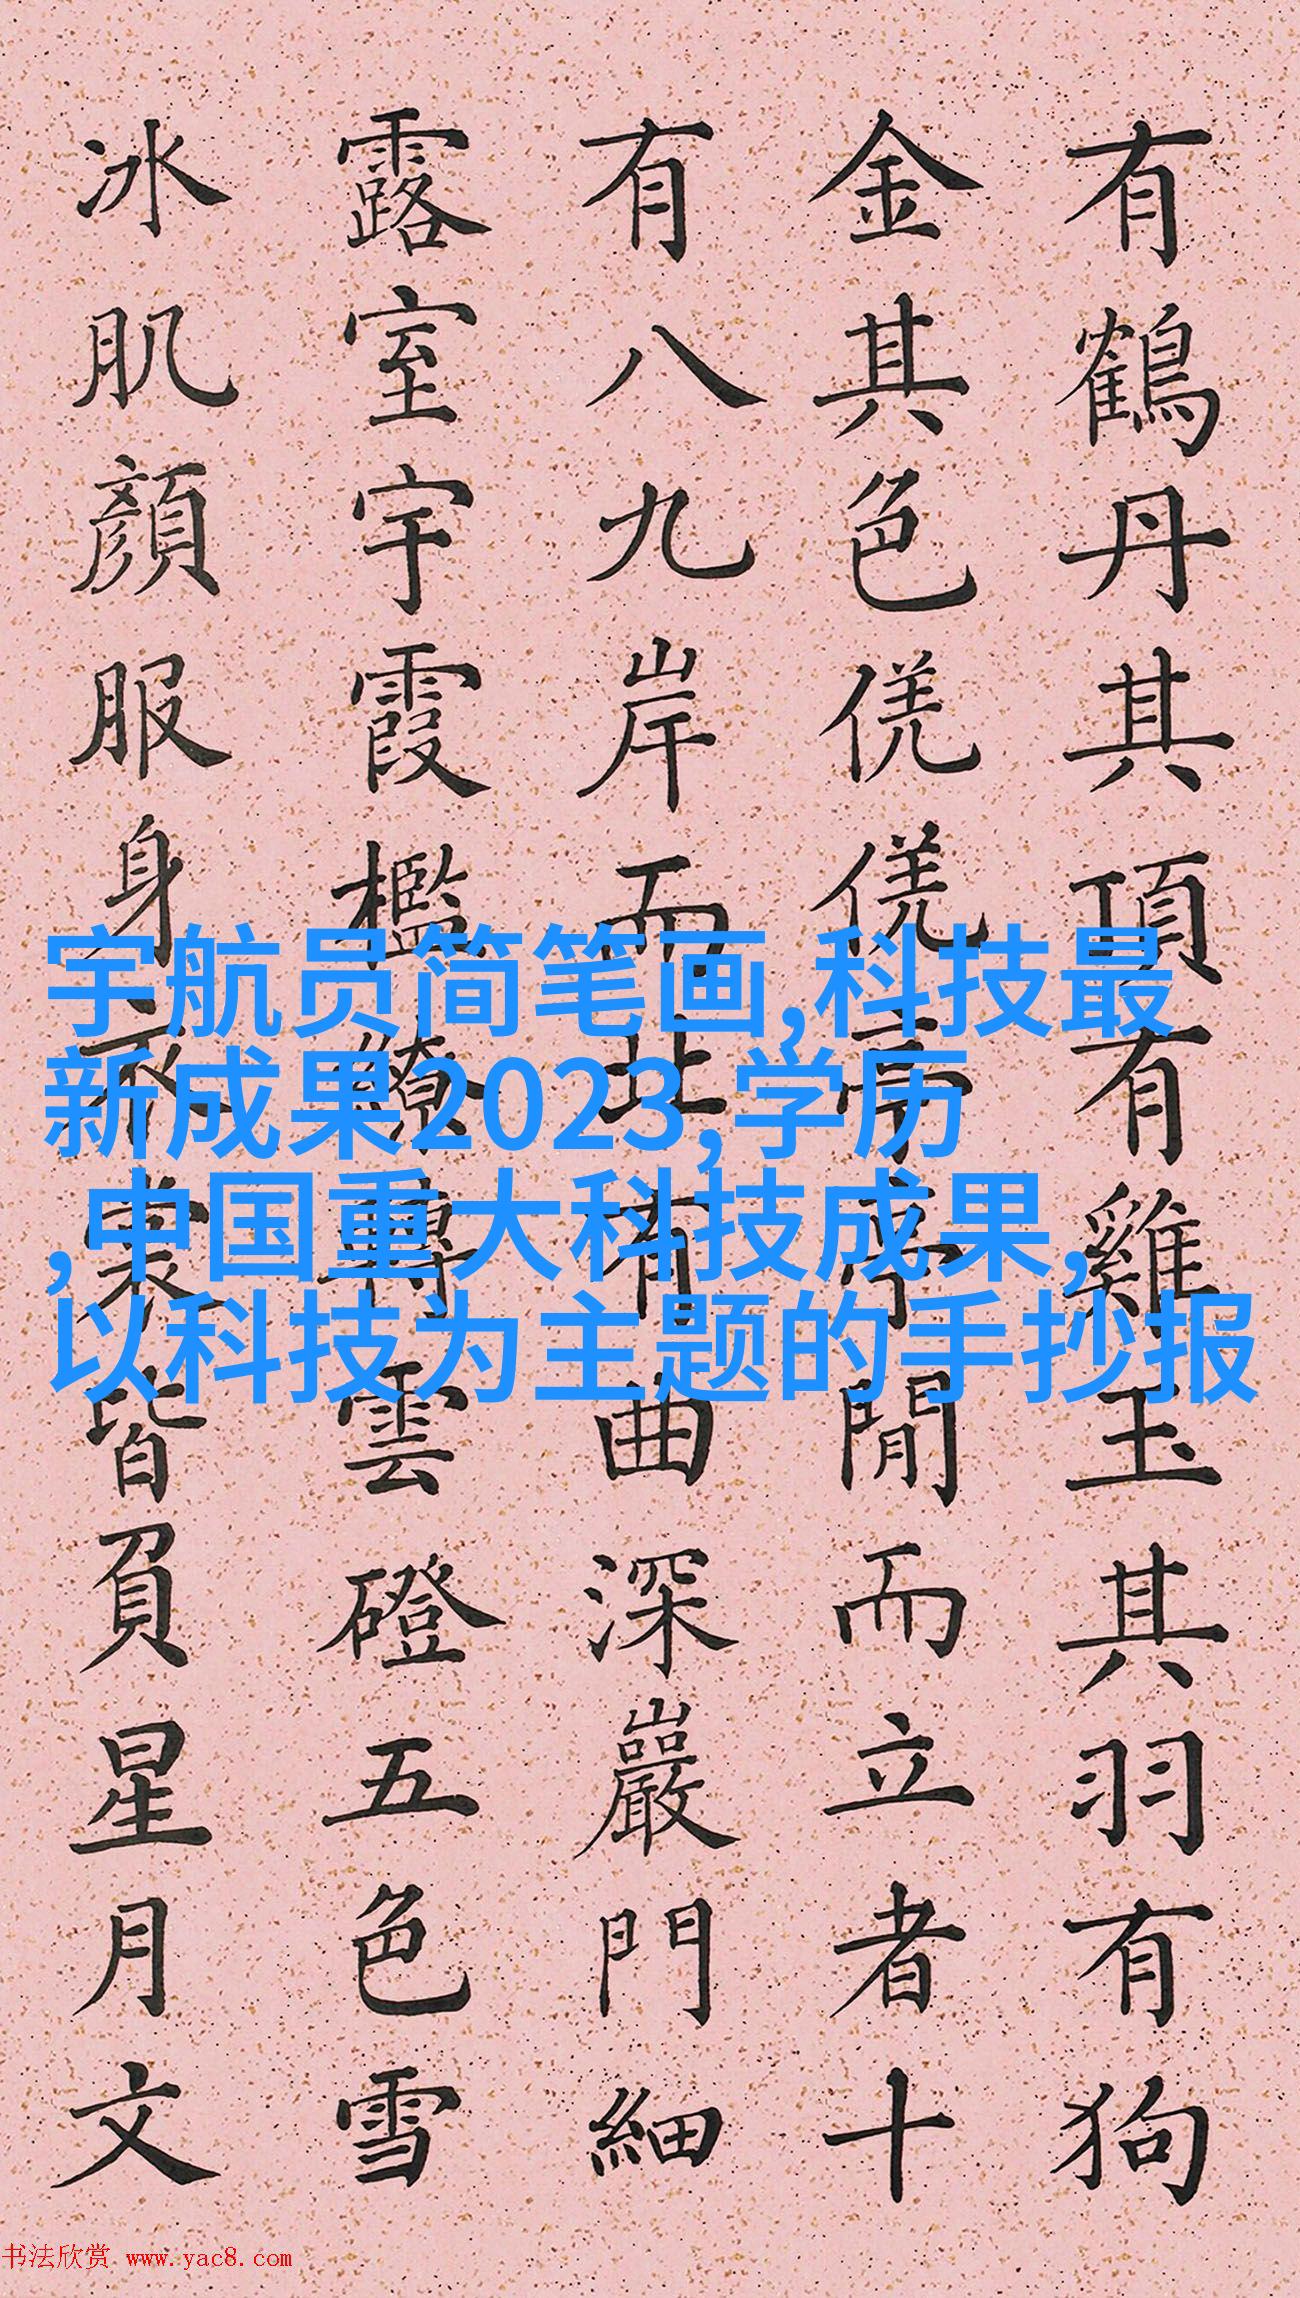 有鶴丹其頂有雞玉其羽有狗
金其色侁侁亭亭閒而立者十
有八九岸而北有曲深巖門細
露室宇霞檻繚轉雲磴五色雪
冰肌顏服身衣裳皆負星月文
宇航员简笔画,科技最
新成果2023,学历
,中国重大科技成果,
以科技为主题的手抄报
书法欣赏 www.yac8.com